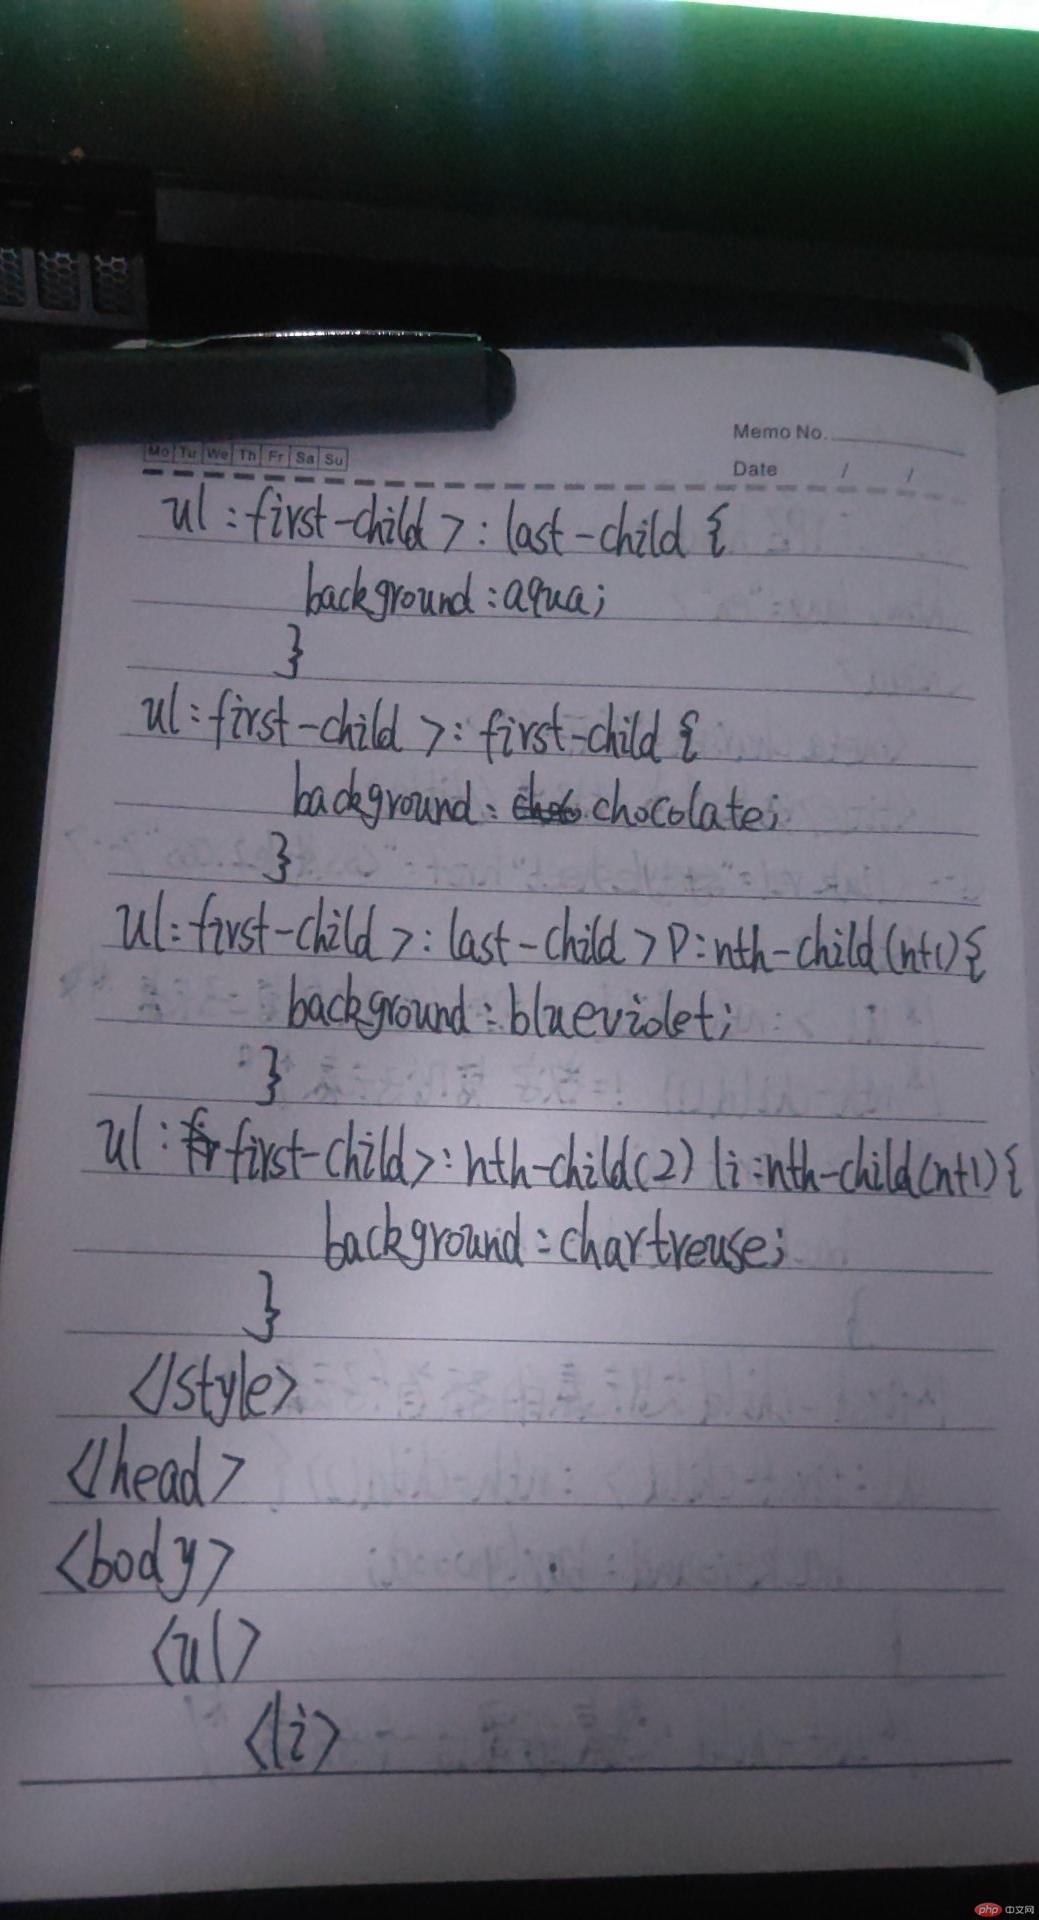 Memo No.
Mo Tu We Th Fr Sa Su
Date / /
ul:first-child>:last-child{
background:aqua;
}
ul:first-child>:first-child{
background:chocolate;
}
ul:first-child>:last-child>p:nth-child(n+1){
background:blueviolet;
}
ul:first-child>:nth-child(2) li:nth-child(n+1){
background:chartreuse;
}
</style>
</head>
<body>
<ul>
<li>
php 中文网